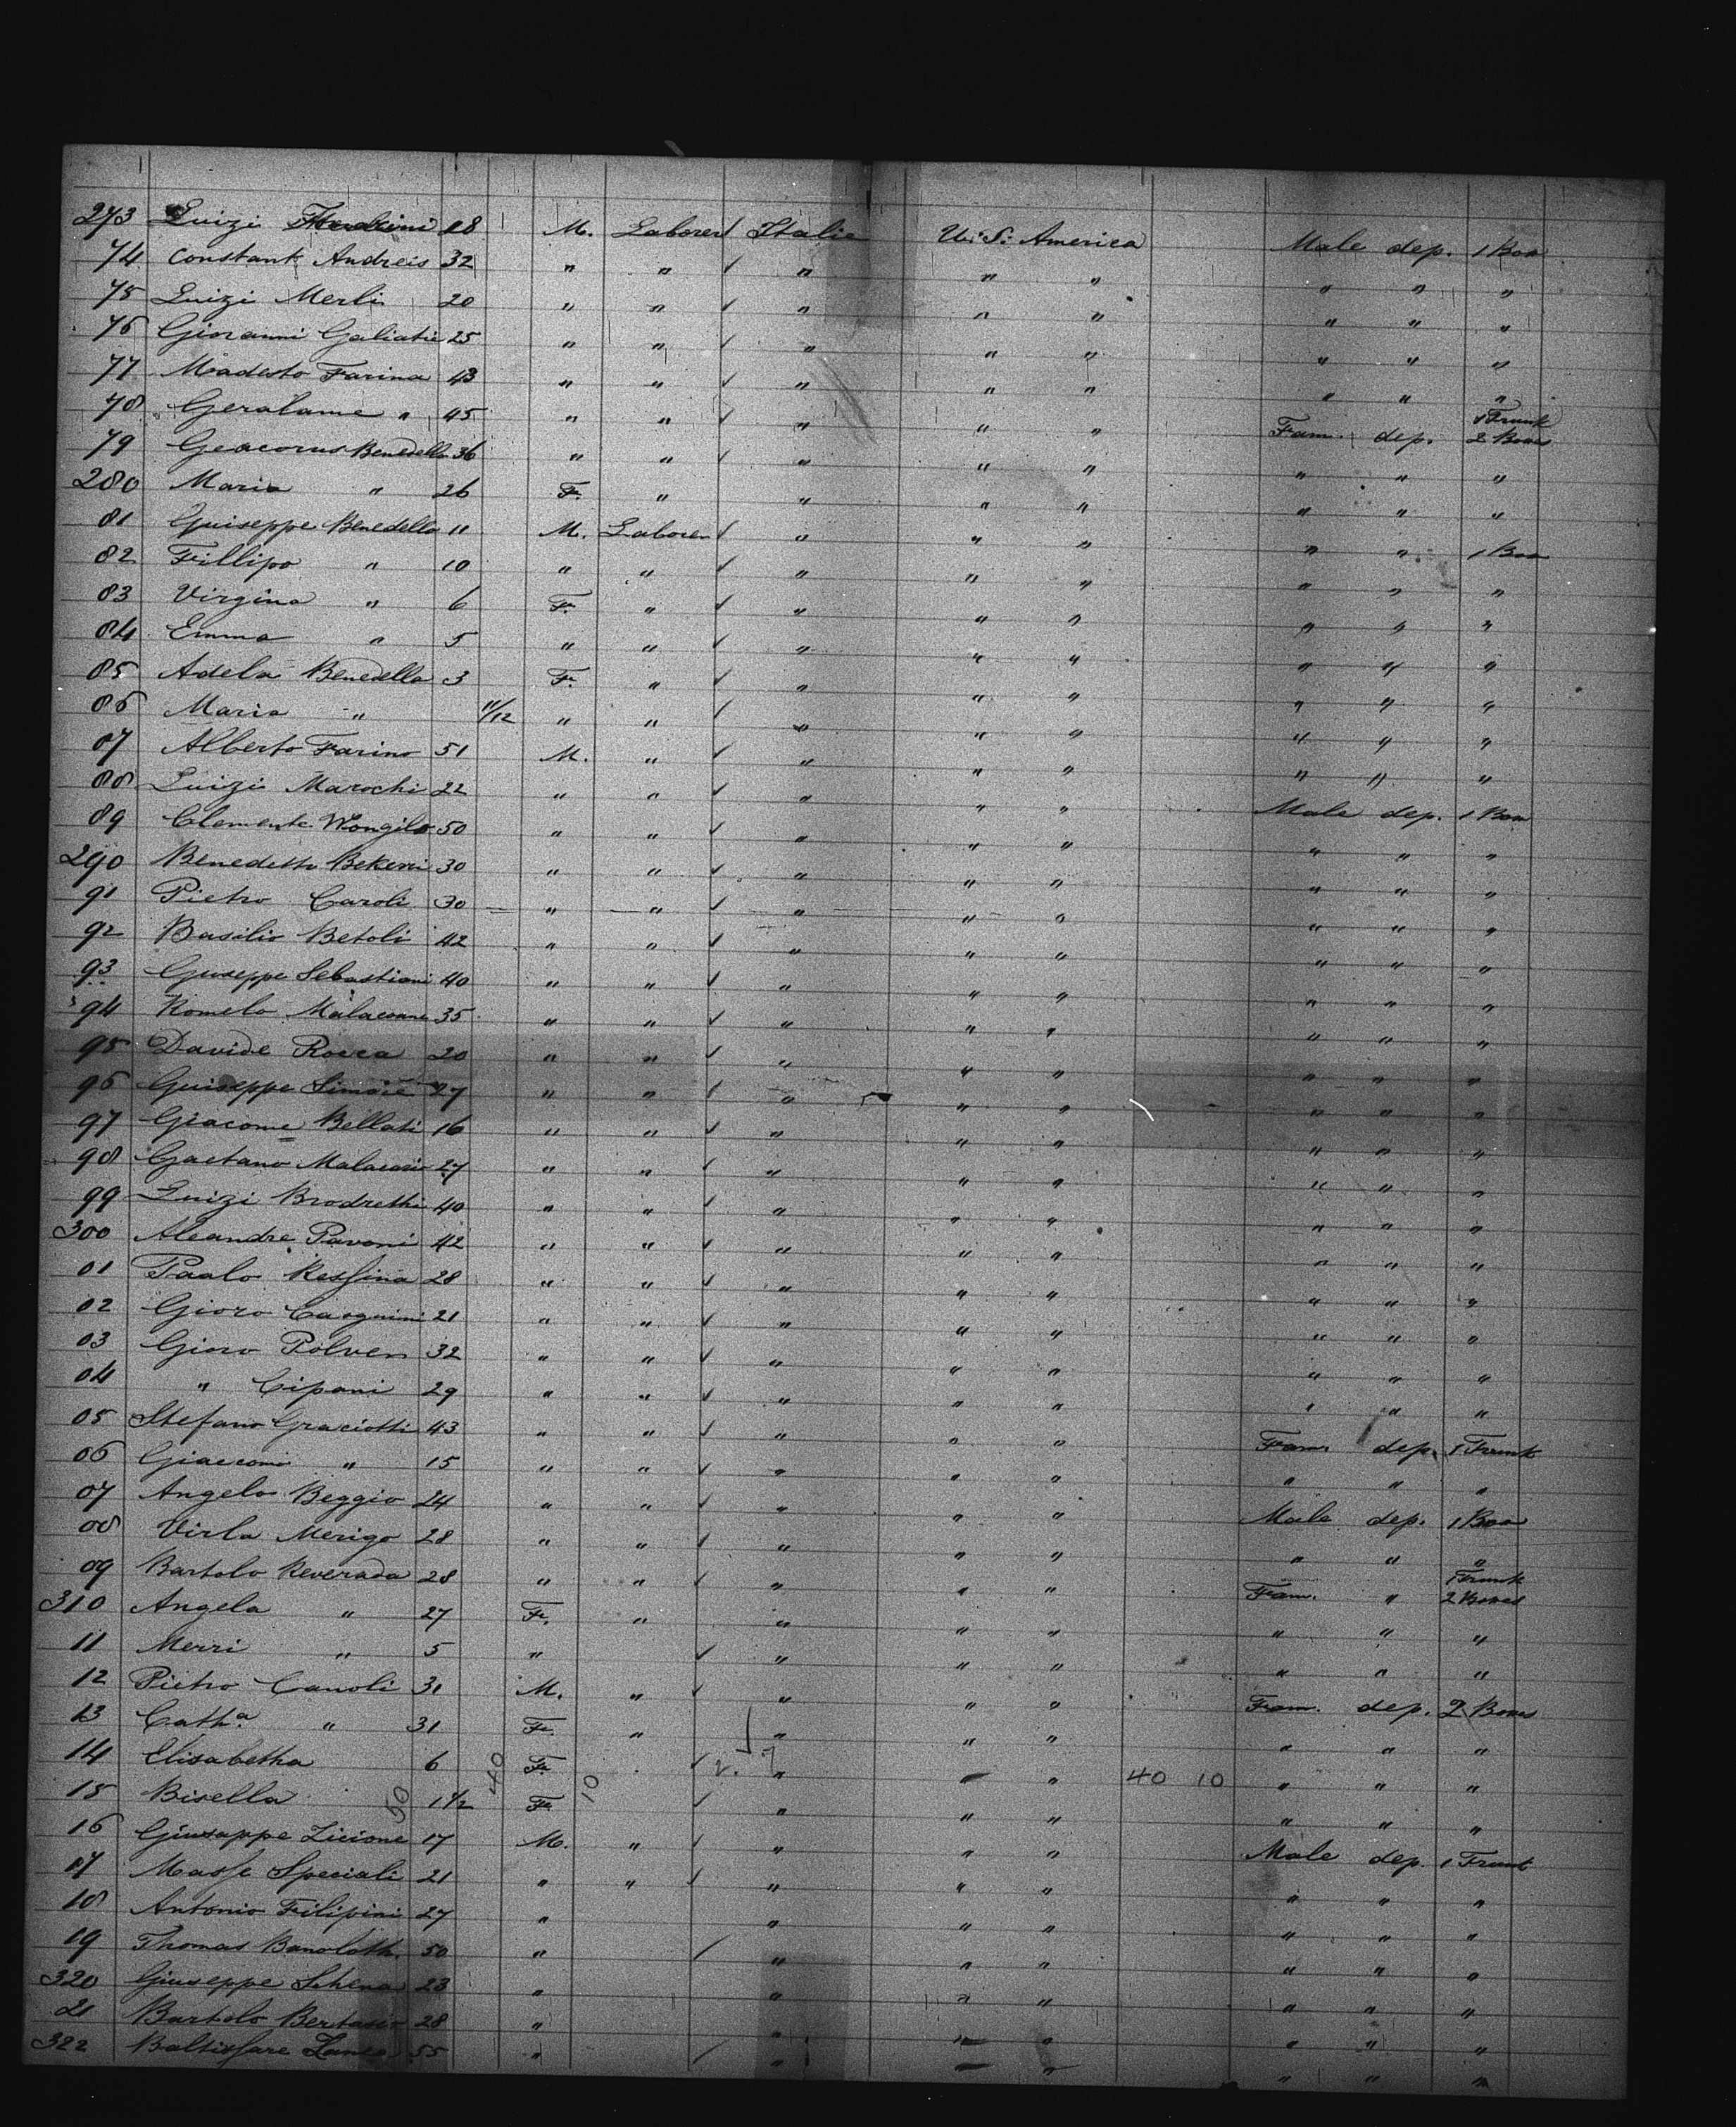 273 Luizi 28 M. Laborer Italie U. S. America Male dep. 1 Box
74 Constant Andreis 32 " " " " " " " "
75 Luizi Merli 20 " " " " " " " "
76 Giovanni Galiatie 25 " " " " " " " "
77 Modesto Farina 43 " " " " " " " "
78 Geralame " 45 " " " " " Fam. dep. 1 Trunk 2 Boxes
79 Geacorus Benedella 36 " " " " " " " "
280 Maria " 26 F. " " " " " " "
81 Guiseppe Benedella 11 M. Laborer " " " " " 1 Box
82 Fillipo " 10 " " " " " " " "
83 Virgina " 6 F. " " " " " " "
84 Emma " 5 " " " " " " " "
85 Adela Benedella 3 F. " " " " " " "
86 Maria " 11/12 " " " " " " " "
87 Alberto Farino 51 M. " " " " " " "
88 Luizi Marochi 22 " " " " " Male dep. 1 Box
89 Clemente Wongilo 50 " " " " " " " "
290 Benedetto Bekerri 30 " " " " " " " "
91 Pietro Caroli 30 " " " " " " " "
92 Basilio Betoli 42 " " " " " " " "
93 Guseppe Sebastiani 40 " " " " " " " "
94 Romelo 35 " " " " " " " "
95 Davide Rocca 20 " " " " " " " "
96 Guiseppe 27 " " " " " " " "
97 Giacome Bellati 16 " " " " " " " "
98 Gaetano 27 " " " " " " " "
99 Luizi Brodrethi 40 " " " " " " " "
300 Aleandre Pavoni 42 " " " " " " " "
01 Paalo Ressina 28 " " " " " " " "
02 Gioro 21 " " " " " " " "
03 Gioro Polver 32 " " " " " " " "
04 " Cipani 29 " " " " " " " "
05 Stefano Graciotti 43 " " " " " Fam. dep. 1 Trunk
06 Giacomi " 15 " " " " " " " "
07 Angelo Beggio 24 " " " " " Male dep. 1 Box
08 Virla Merigo 28 " " " " " " " "
09 Bartolo Reverada 28 " " " " " Fam. " 1 Trunk 2 Boxes
310 Angela " 27 F. " " " " " " "
11 Merri " 5 " " " " " " "
12 Pietro Canoli 31 M. " " " " Fam. dep. 2 Boxes
13 Catha " 31 F. " " " " " " "
14 Elisabetha 6 F. " " 40 10 " " "
15 Bisella 1 1/2 F. " " " " " "
50 40 10
16 Giusappe Licione 17 M. " " " " Male dep. 1 Trunk
17 Masse Speciali 21 " " " " " " " "
18 Antonio Filipini 27 " " " " " " "
19 Thomas 50 " " " " " " "
320 Giuseppe Schena 23 " " " " " " "
21 Bartolo 28 " " " " " " "
322 Baltissare 55 " " " " " " "